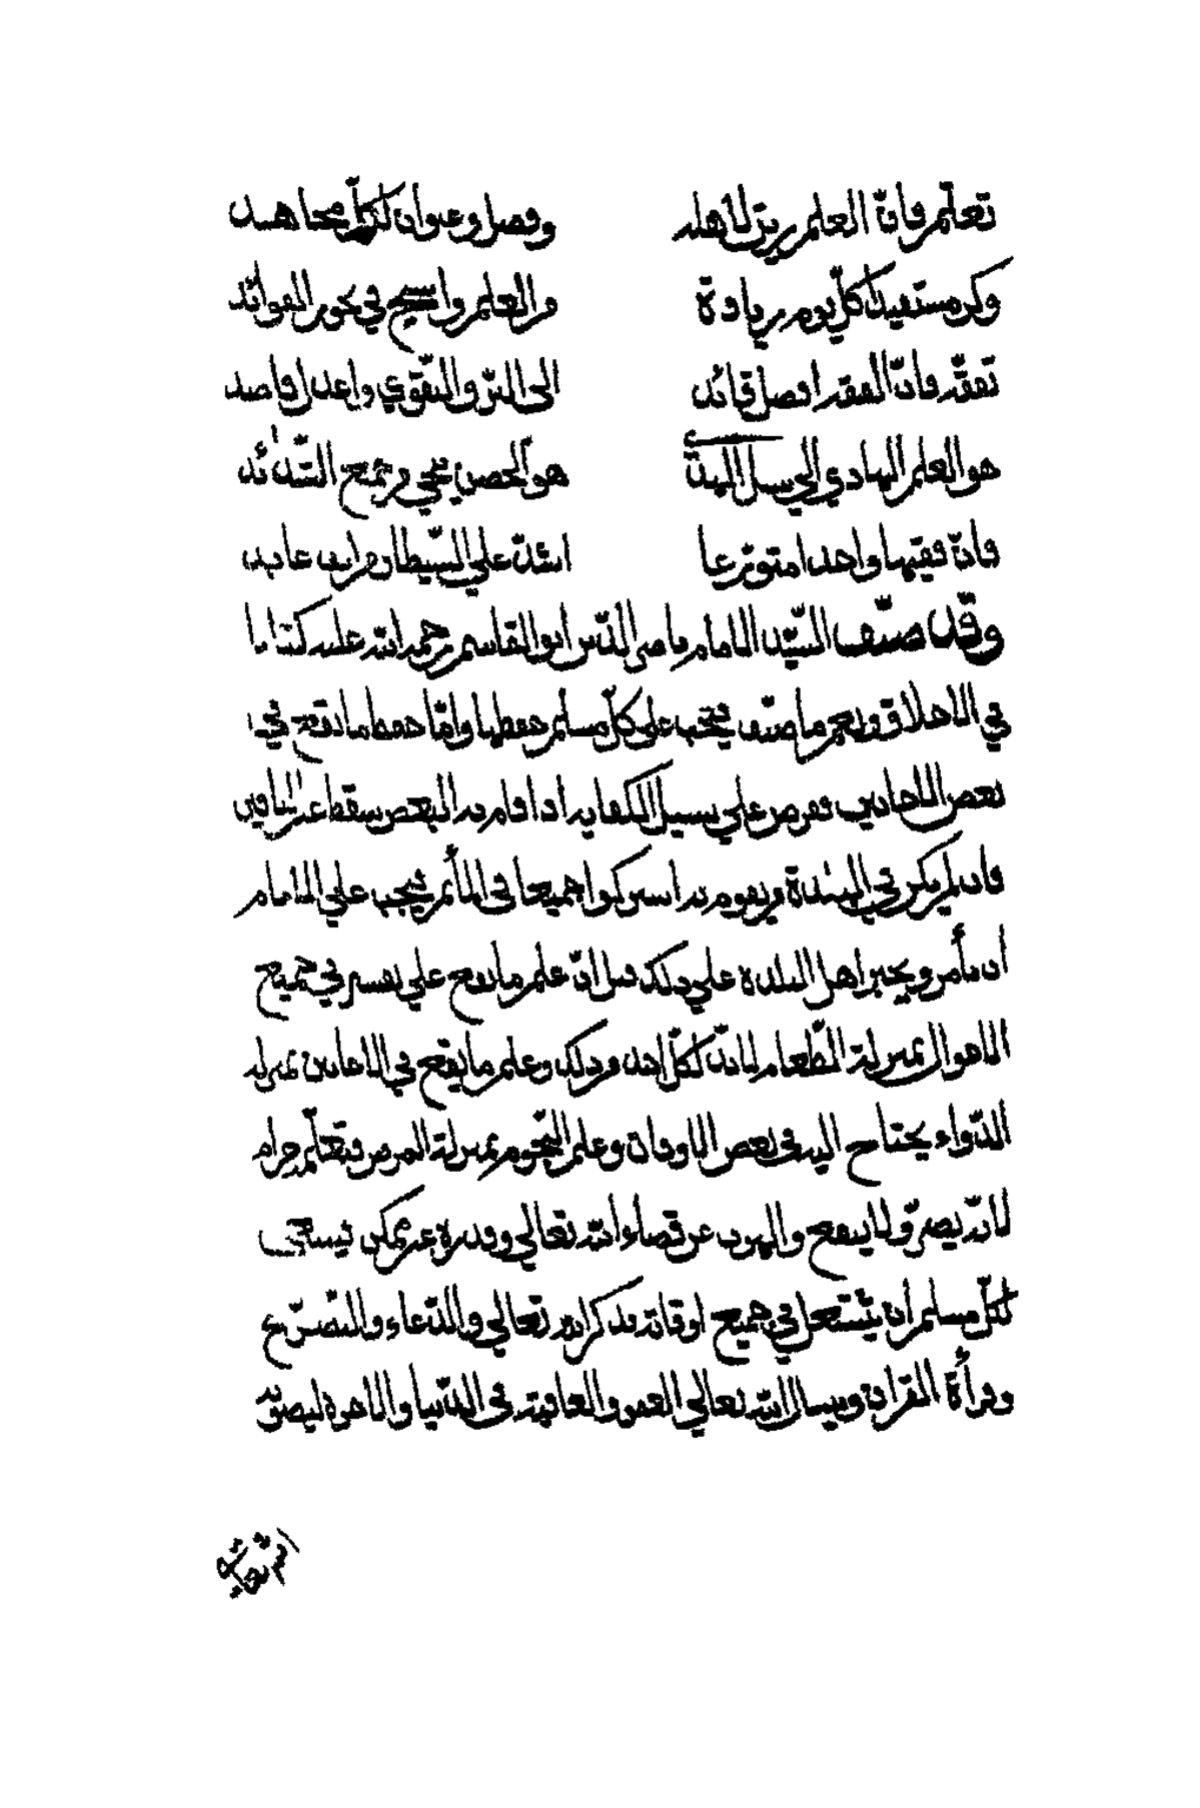 تعلم فان العلم زين لاهله وفضل وعنوان لكل محامد
وكن مستفيدا كل يوم زيادة من العلم واسبح في بحور الفوائد
تفقه فان الفقه افضل قائد الى البر والتقوي واعدل قاصد
هو العلم الهادي الي سبل الهدي هو الحصن ينجي من جميع الشدائد
فان فقيها واحدا متورعا اشد علي الشيطان من الف عابد
وقد صنف السيد الامام ناصر الدين ابو القاسم رحمة الله عليه كتابا
في الاخلاق ونعم ما صنف فيجب على كل مسلم حفظها واما حفظ ما يقع في
بعض الاحايين ففرض علي سبيل الكفاية اذا قام به البعض سقط عن الباقين
فان لم يكن في البلدة من يقوم به اشتركوا جميعا في المأثم فيجب علي الامام
ان يأمر ويجبر اهل البلدة علي ذلك قيل ان علم ما يقع علي نفسه في جميع
الاحوال بمنزلة الطعام لا بد لكل احد من ذلك وعلم ما يقع في الاحايين بمنزلة
الدواء يحتاج اليه في بعض الاوقات وعلم النجوم بمنزلة المرض فتعلمه حرام
لانه يضر ولا ينفع والهرب عن قضاء الله تعالي وقدره غير ممكن فينبغي
لكل مسلم أن يشتغل في جميع اوقاته بذكر الله تعالي والدعاء والتضرع
وقرأة القران ويسال الله تعالي العفو والعافية في الدنيا والاخرة ليصونه